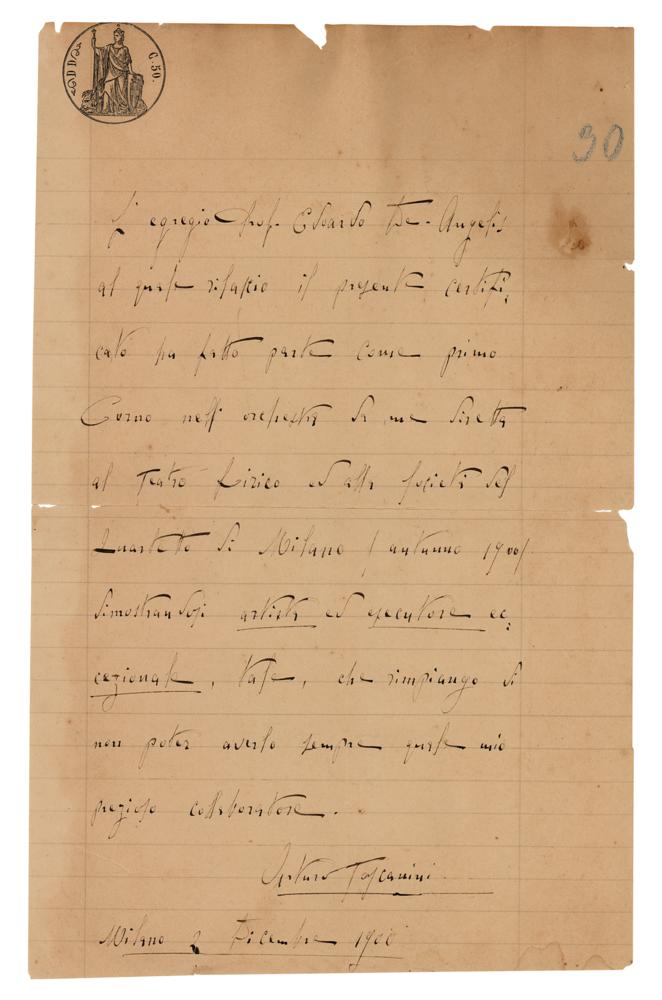 C. 50.
30
L'egregio Prof. Edoardo De-Angelis
al quale rilascio il presente certifi;
cato ha fatto parte come primo
Corno nell'orchestra da me diretta
al Teatro Lirico ed alla Società del
Quartetto di Milano (autunno 1900)
dimostrandosi artista ed esecutore ec;
cezionale, tale, che rimpiango di
non poter averlo sempre quale mio
prezioso collaboratore.
Arturo Toscanini
Milano 2 Dicembre 1900